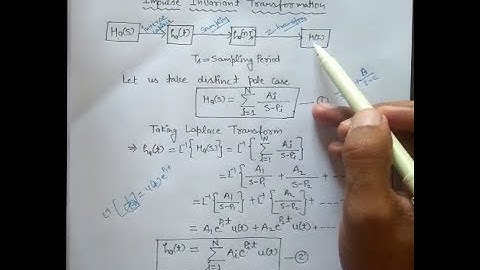 Impulse Invariant Transformation
Ha(s) Inverse Laplace ha(t) Sampling ha(nTs) Z transform H(z)
Ts = Sampling Period
Let us take distinct pole case
Ha(s) = N∑i=1 Ai/(s-Pi) — ①
Taking Laplace Transform
⇒ ha(t) = L⁻¹{Ha(s)} = L⁻¹{N∑i=1 Ai/(s-Pi)}
= L⁻¹{A1/(s-P1) + A2/(s-P2) + ---
= L⁻¹{A1/(s-P1)} + L⁻¹{A2/(s-P2)} + ---
= A1e^P1t u(t) + A2e^P2t u(t) + ---
ha(t) = N∑i=1 Ai e^Pit u(t) — ②